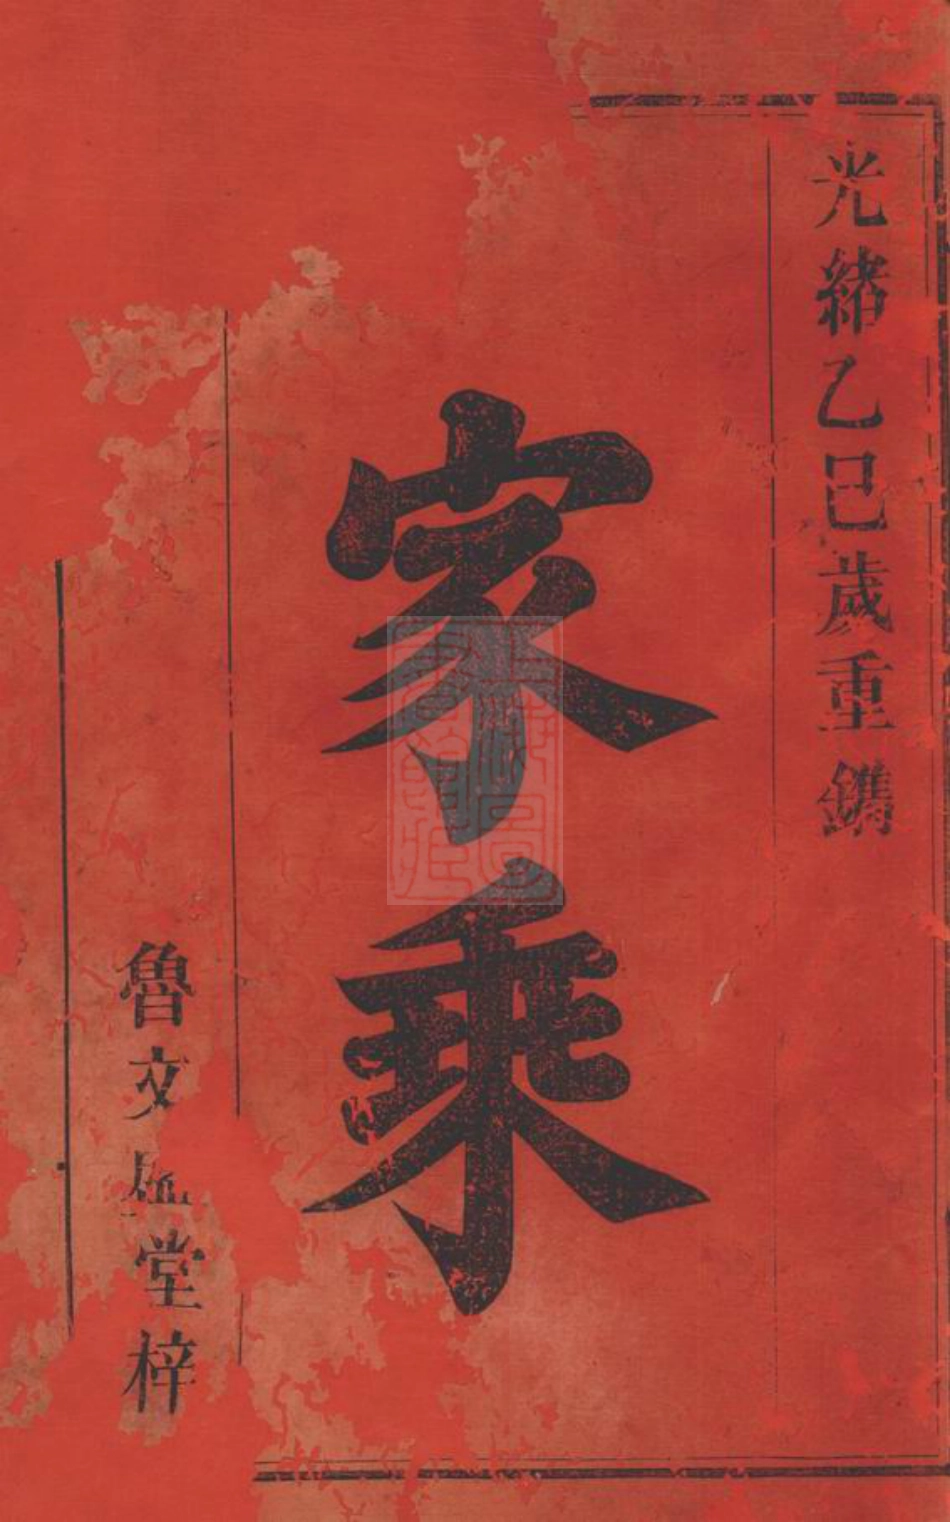 光緒乙巳歲重鐫
家乘
魯文堂梓